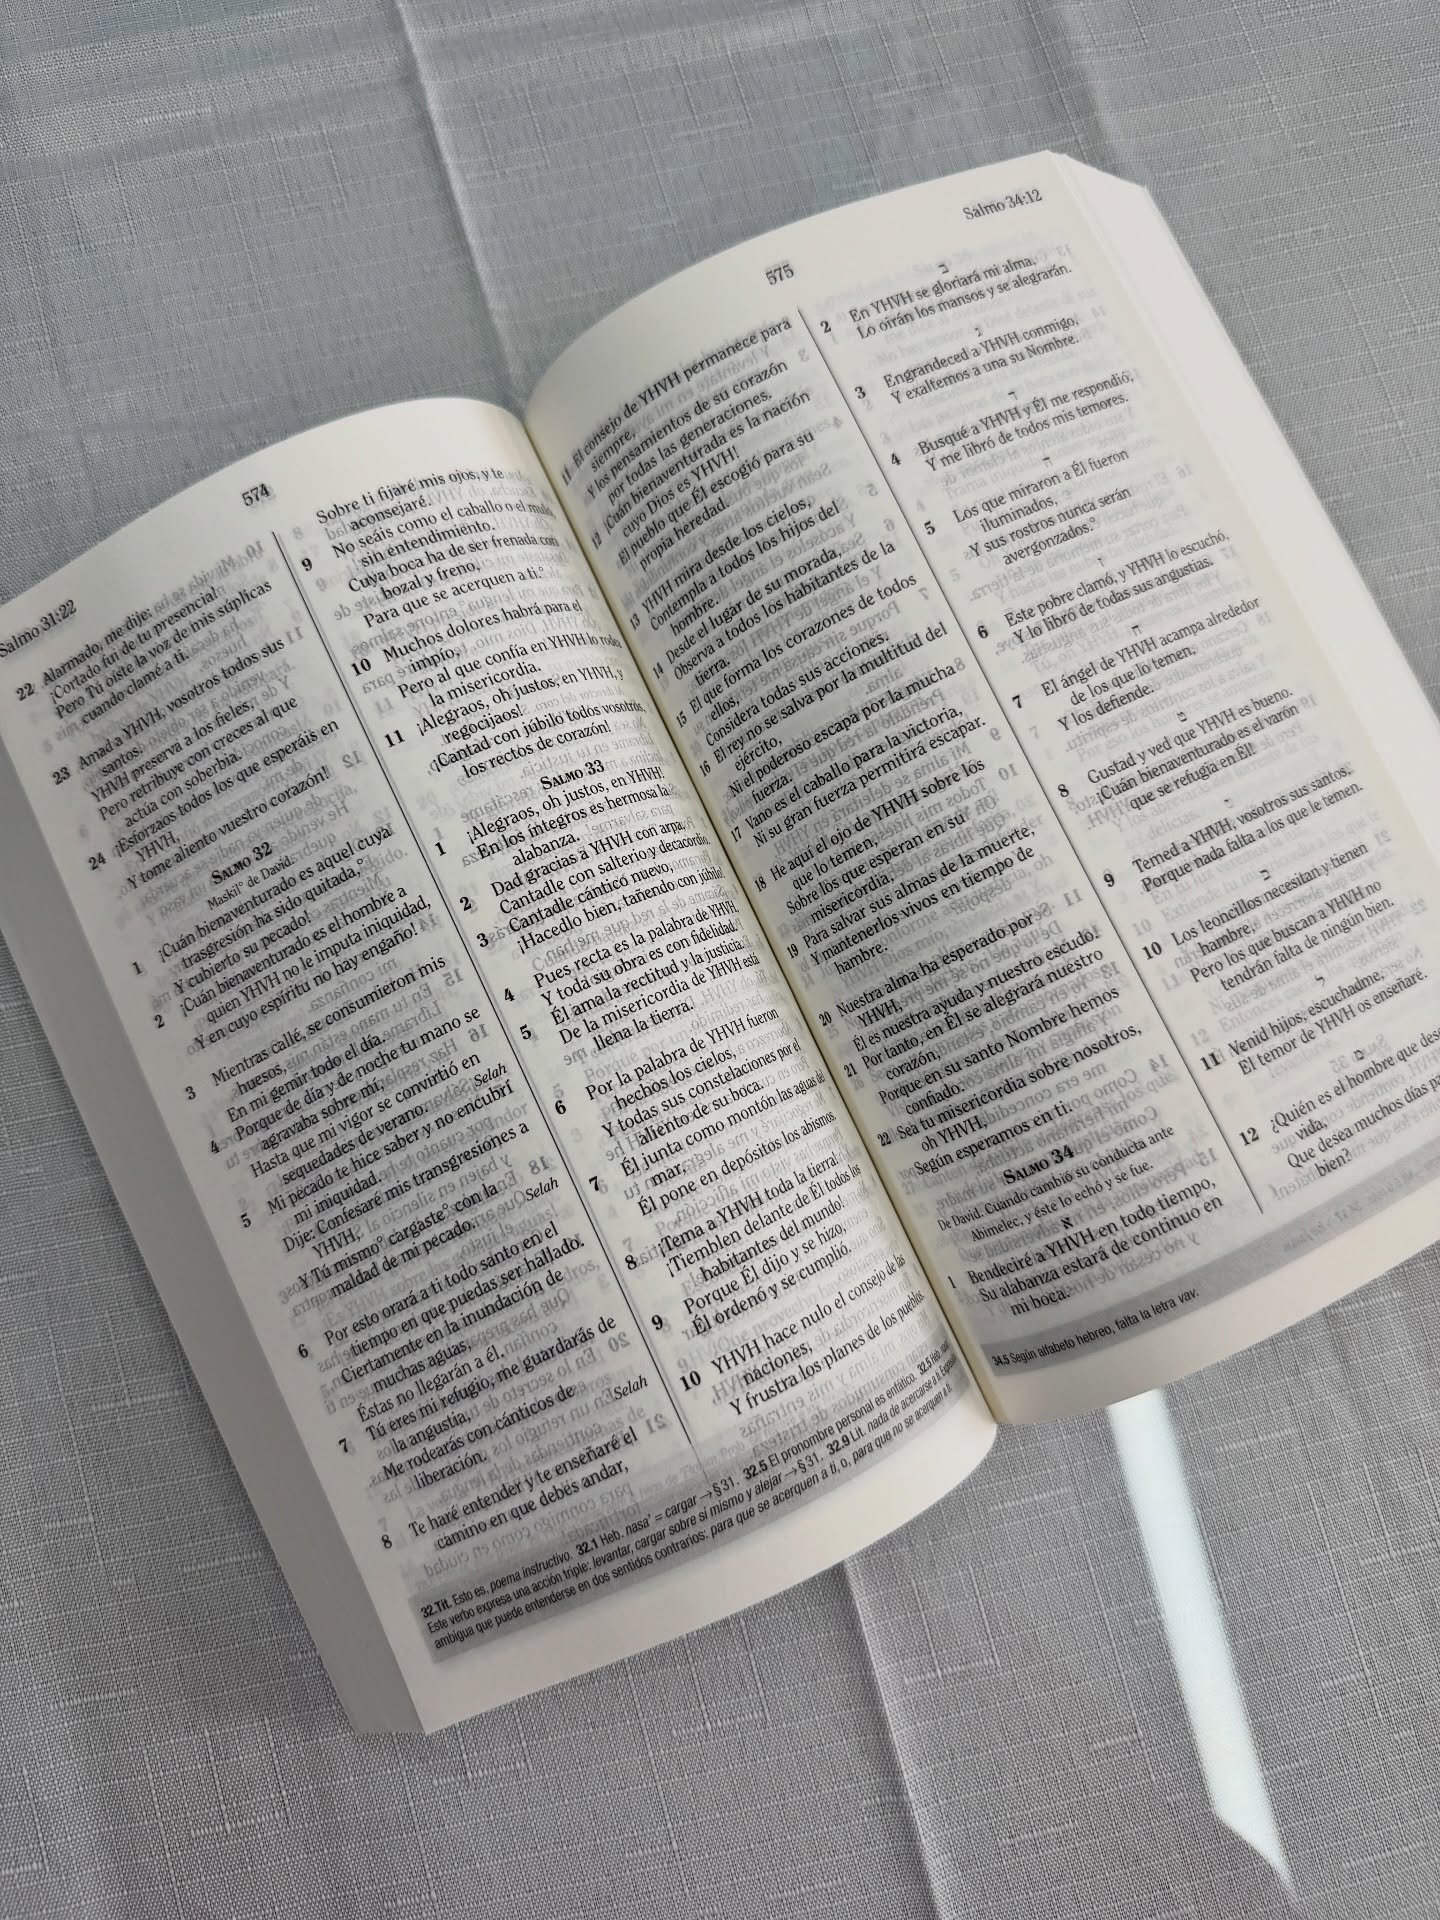 Salmo 31:22
574
22 Alarmado, me dije:
¡Cortado fui de tu presencia!
Pero Tú oíste la voz de mis súplicas
cuando clamé a ti.
23 Amad a YHVH, vosotros todos sus
santos.
YHVH preserva a los fieles, Y
Pero retribuye con creces al que
actúa con soberbia.
24 ¡Esforzaos todos los que esperáis en
YHVH,
Y tome aliento vuestro corazón!
SALMO 32
Maskil° de David.
1 ¡Cuán bienaventurado es aquel cuya
trasgresión ha sido quitada,°
Y cubierto su pecado!
2 ¡Cuán bienaventurado es el hombre a
quien YHVH no le imputa iniquidad,
Y en cuyo espíritu no hay engaño!
3 Mientras callé, se consumieron mis
huesos,
En mi gemir todo el día.
4 Porque de día y de noche tu mano se
agravaba sobre mí,
Hasta que mi vigor se convirtió en
sequedades de verano. Selah
5 Mi pecado te hice saber y no encubrí
mi iniquidad.
Dije: Confesaré mis transgresiones a
YHVH,
Y Tú mismo° cargaste° con la
maldad de mi pecado. Selah
6 Por esto orará a ti todo santo en el
tiempo en que puedas ser hallado.
Ciertamente en la inundación de
muchas aguas,
Éstas no llegarán a él.
7 Tú eres mi refugio; me guardarás de
la angustia,
Me rodearás con cánticos de
liberación. Selah
8 Te haré entender y te enseñaré el
camino en que debes andar,
Sobre ti fijaré mis ojos, y te
aconsejaré.
9 No seáis como el caballo o el mulo
sin entendimiento.
Cuya boca ha de ser frenada con
bozal y freno,
Para que se acerquen a ti.°
10 Muchos dolores habrá para el
impío,
Pero al que confía en YHVH lo rodea
la misericordia.
11 ¡Alegraos, oh justos, en YHVH, y
regocijaos!
¡Cantad con júbilo todos vosotros,
los rectos de corazón!
SALMO 33
1 ¡Alegraos, oh justos, en YHVH!
En los íntegros es hermosa la
alabanza.
2 Dad gracias a YHVH con arpa,
Cantadle con salterio y decacordio.
3 Cantadle cántico nuevo,
¡Hacedlo bien, tañendo con júbilo!
4 Pues recta es la palabra de YHVH,
Y toda su obra es con fidelidad.
5 Él ama la rectitud y la justicia;
De la misericordia de YHVH está
llena la tierra.
6 Por la palabra de YHVH fueron
hechos los cielos,
Y todas sus constelaciones por el
aliento de su boca.
7 Él junta como montón las aguas del
mar,
Él pone en depósitos los abismos.
8 ¡Tema a YHVH toda la tierra!
¡Tiemblen delante de Él todos los
habitantes del mundo!
9 Porque Él dijo y se hizo,
Él ordenó y se cumplió.
10 YHVH hace nulo el consejo de las
naciones,
Y frustra los planes de los pueblos.
32.Tit. Esto es, poema instructivo. 32.1 Heb. nasa' = cargar →§31. 32.5 El pronombre personal es enfático. 32.5 Heb.
Este verbo expresa una acción triple: levantar, cargar sobre sí mismo y alejar →§31. 32.9 Lit. nada de acercarse a ti.
ambigua que puede entenderse en dos sentidos contrarios: para que se acerquen a ti, o, para que no se acerquen a ti.
575
Salmo 34:12
11 El consejo de YHVH permanece para
siempre,
Y los pensamientos de su corazón
por todas las generaciones.
12 ¡Cuán bienaventurada es la nación
cuyo Dios es YHVH!
El pueblo que Él escogió para su
propia heredad.
13 YHVH mira desde los cielos,
Contempla a todos los hijos del
hombre.
14 Desde el lugar de su morada,
Observa a todos los habitantes de la
tierra.
15 El que forma los corazones de todos
ellos,
Considera todas sus acciones.
16 El rey no se salva por la multitud del
ejército,
Ni el poderoso escapa por la mucha
fuerza.
17 Vano es el caballo para la victoria,
Ni su gran fuerza permitirá escapar.
18 He aquí el ojo de YHVH sobre los
que lo temen,
Sobre los que esperan en su
misericordia,
19 Para salvar sus almas de la muerte,
Y mantenerlos vivos en tiempo de
hambre.
20 Nuestra alma ha esperado por
YHVH,
Él es nuestra ayuda y nuestro escudo.
21 Por tanto, en Él se alegrará nuestro
corazón,
Porque en su santo Nombre hemos
confiado.
22 Sea tu misericordia sobre nosotros,
oh YHVH,
Según esperamos en ti.
SALMO 34
De David. Cuando cambió su conducta ante
Abimelec, y éste lo echó y se fue.
א
1 Bendeciré a YHVH en todo tiempo,
Su alabanza estará de continuo en
mi boca.
ב
2 En YHVH se gloriará mi alma,
Lo oirán los mansos y se alegrarán.
ג
3 Engrandeced a YHVH conmigo,
Y exaltemos a una su Nombre.
ד
4 Busqué a YHVH y Él me respondió,
Y me libró de todos mis temores.
ה
5 Los que miraron a Él fueron
iluminados,
Y sus rostros nunca serán
avergonzados.°
ז
6 Este pobre clamó, y YHVH lo escuchó,
Y lo libró de todas sus angustias.
ח
7 El ángel de YHVH acampa alrededor
de los que lo temen,
Y los defiende.
ט
8 Gustad y ved que YHVH es bueno.
¡Cuán bienaventurado es el varón
que se refugia en Él!
י
9 Temed a YHVH, vosotros sus santos,
Porque nada falta a los que le temen.
כ
10 Los leoncillos necesitan y tienen
hambre,
Pero los que buscan a YHVH no
tendrán falta de ningún bien.
ל
11 Venid hijos, escuchadme,
El temor de YHVH os enseñaré.
מ
12 ¿Quién es el hombre que
vida,
Que desea muchos días
bien?
34.5 Según alfabeto hebreo, falta la letra vav.